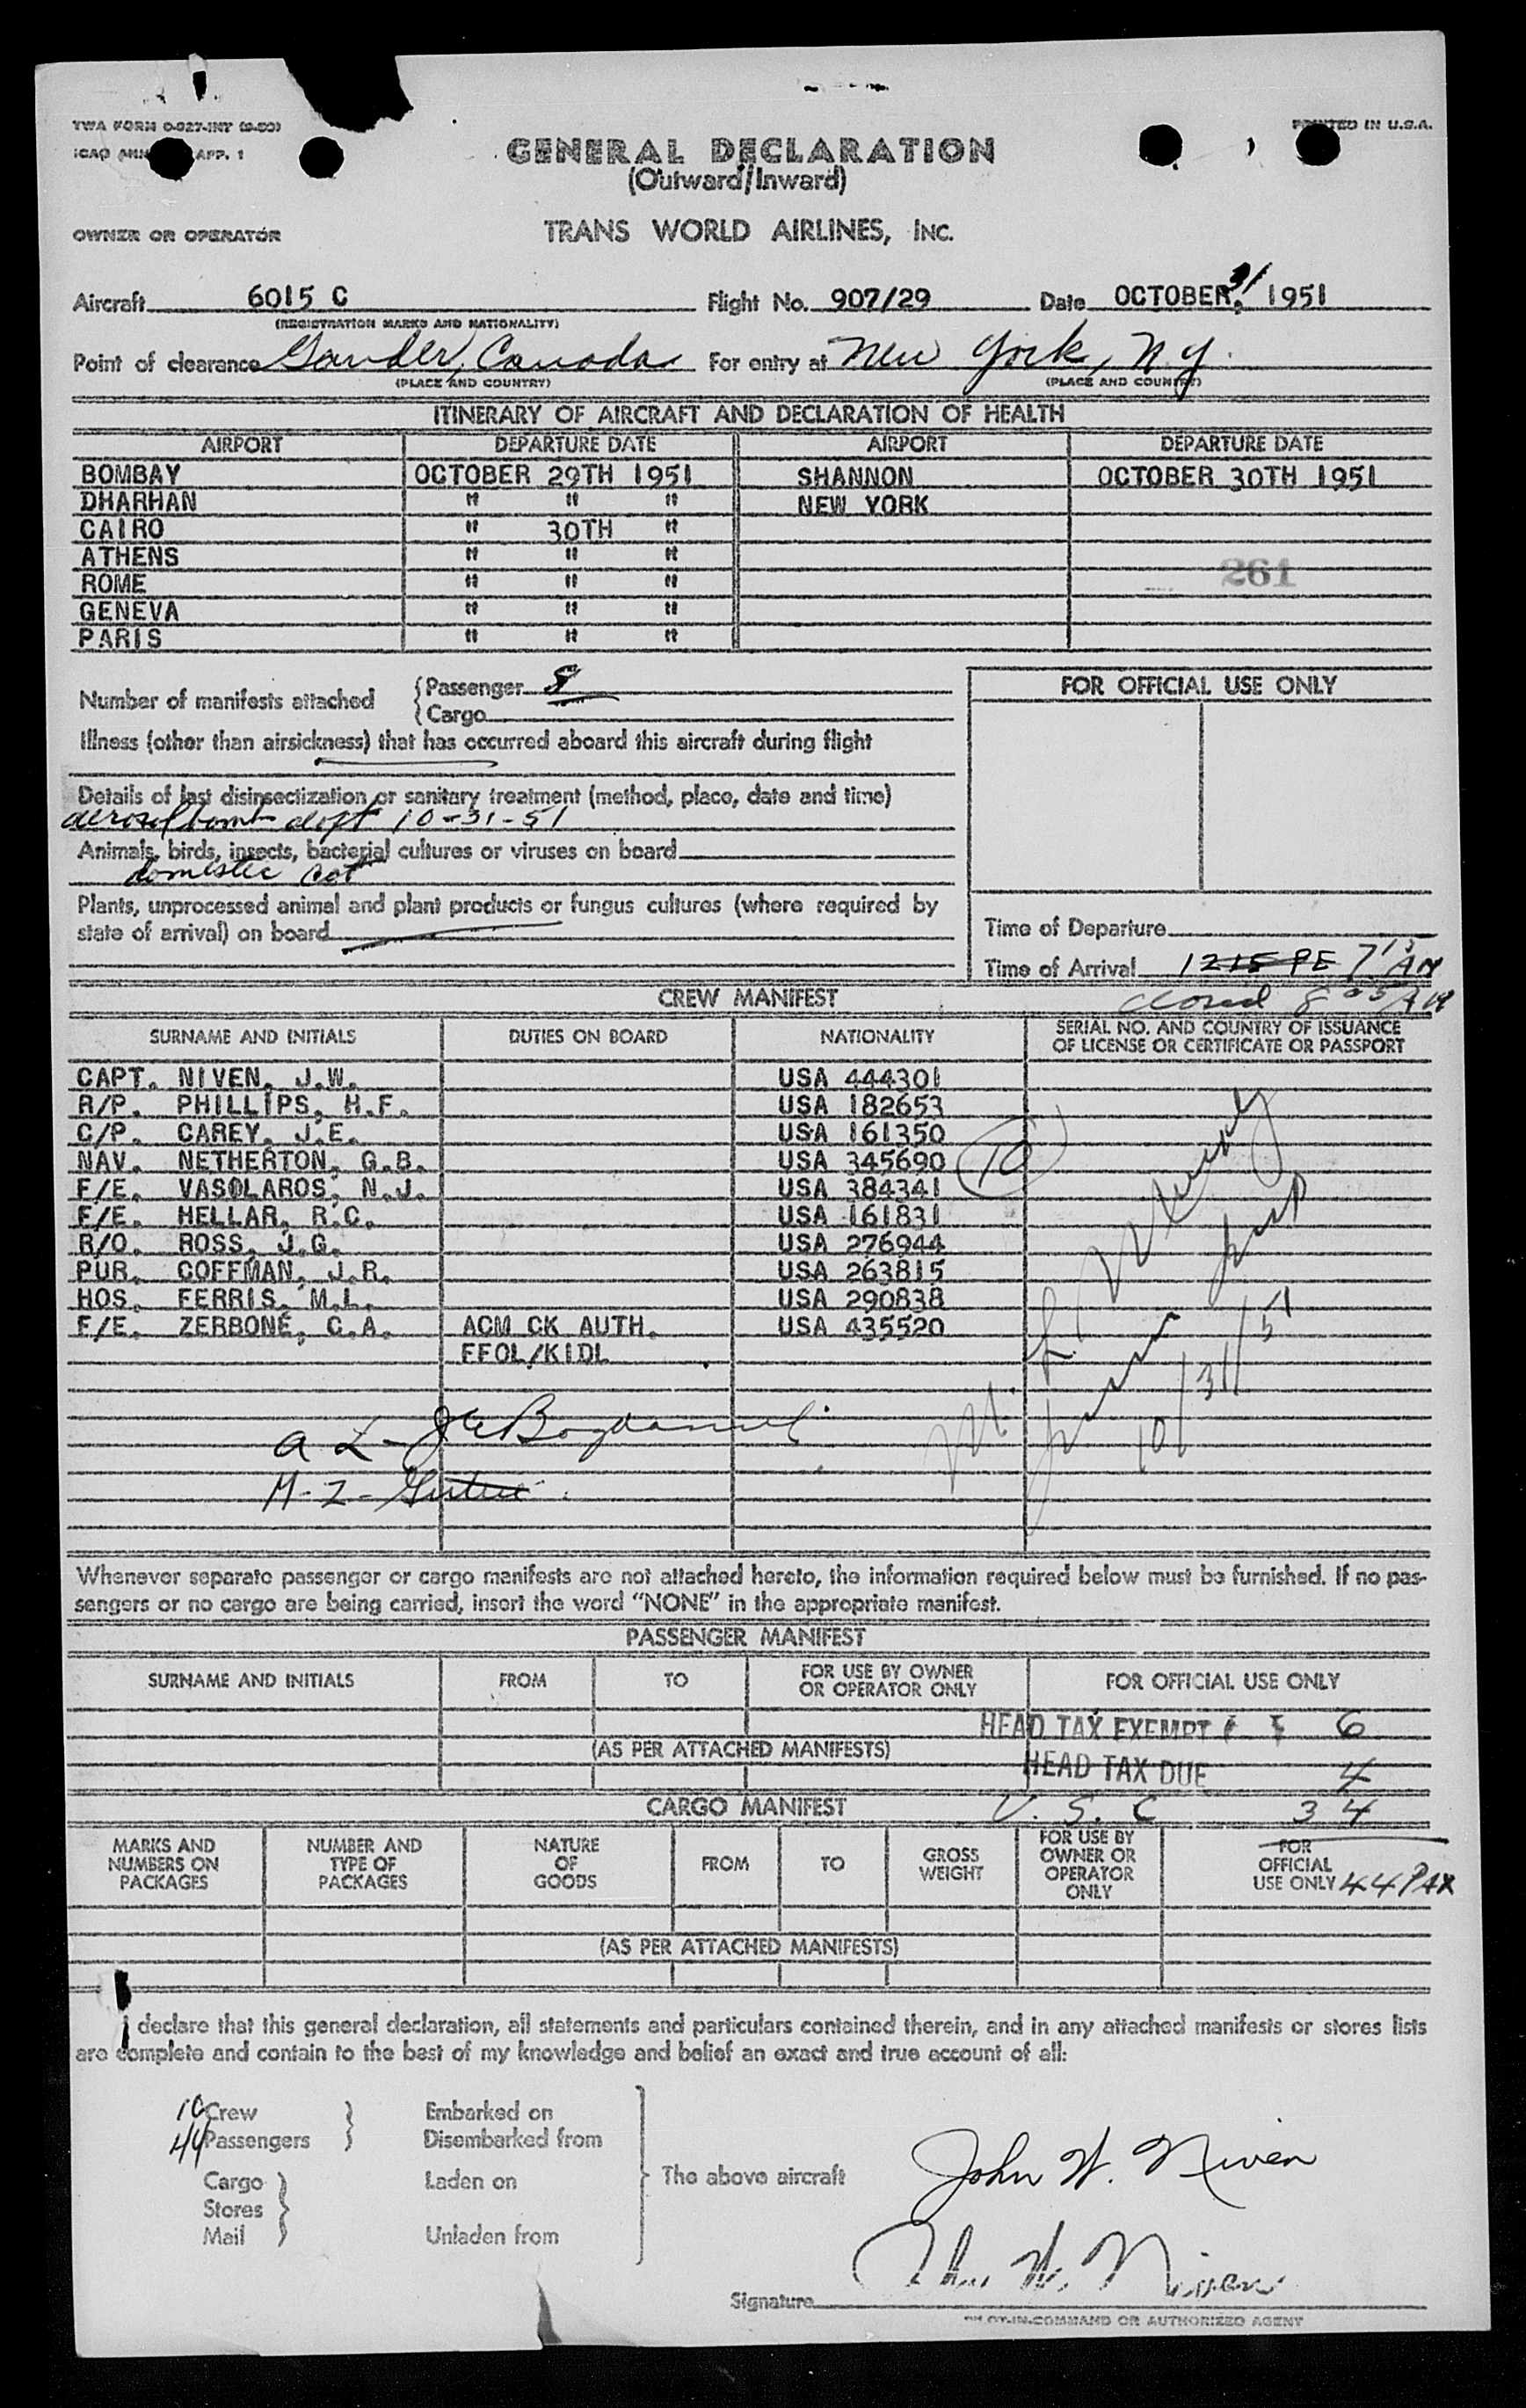 TWA FORM O-927-INT (9-50)
PRINTED IN U.S.A.
ICAO APP. 1
GENERAL DECLARATION
(Outward/Inward)
OWNER OR OPERATOR TRANS WORLD AIRLINES, INC.
Aircraft 6015 C Flight No. 907/29 Date OCTOBER 31, 1951
(REGISTRATION MARKS AND NATIONALITY)
Point of clearance Gander, Canada For entry at New York, N.Y.
(PLACE AND COUNTRY) (PLACE AND COUNTRY)
ITINERARY OF AIRCRAFT AND DECLARATION OF HEALTH
AIRPORT DEPARTURE DATE AIRPORT DEPARTURE DATE
BOMBAY OCTOBER 29TH 1951 SHANNON OCTOBER 30TH 1951
DHARHAN " " " NEW YORK
CAIRO " 30TH "
ATHENS " " "
261
ROME " " "
GENEVA " " "
PARIS " " "
Number of manifests attached { Passenger 8
{ Cargo
FOR OFFICIAL USE ONLY
Illness (other than airsickness) that has occurred aboard this aircraft during flight
Details of last disinsectization or sanitary treatment (method, place, date and time)
aerosol bomb dept 10-31-51
Animals, birds, insects, bacterial cultures or viruses on board
domestic cat
Plants, unprocessed animal and plant products or fungus cultures (where required by
state of arrival) on board
Time of Departure
Time of Arrival 1215 PE 7 15 AM
closed 8 05 AM
CREW MANIFEST
SURNAME AND INITIALS DUTIES ON BOARD NATIONALITY SERIAL NO. AND COUNTRY OF ISSUANCE
OF LICENSE OR CERTIFICATE OR PASSPORT
CAPT. NIVEN, J.W. USA 444301
R/P. PHILLIPS, H.F. USA 182653
C/P. CAREY, J.E. USA 161350
NAV. NETHERTON, G.B. USA 345690 10
F/E. VASOLAROS, N.J. USA 384341
F/E. HELLAR, R.C. USA 161831
R/O. ROSS, J.G. USA 276944
PUR. COFFMAN, J.R. USA 263815
HOS. FERRIS, M.L. USA 290838
F/E. ZERBONE, C.A. ACM CK AUTH. USA 435520
FFOL/KIDL
10/31/51
Whenever separate passenger or cargo manifests are not attached hereto, the information required below must be furnished. If no pas-
sengers or no cargo are being carried, insert the word "NONE" in the appropriate manifest.
PASSENGER MANIFEST
SURNAME AND INITIALS FROM TO FOR USE BY OWNER
OR OPERATOR ONLY FOR OFFICIAL USE ONLY
HEAD TAX EXEMPT 6
(AS PER ATTACHED MANIFESTS)
HEAD TAX DUE 4
CARGO MANIFEST U. S. C 34
MARKS AND
NUMBERS ON
PACKAGES NUMBER AND
TYPE OF
PACKAGES NATURE
OF
GOODS FROM TO GROSS
WEIGHT FOR USE BY
OWNER OR
OPERATOR
ONLY FOR
OFFICIAL
USE ONLY 44 PAX
(AS PER ATTACHED MANIFESTS)
I declare that this general declaration, all statements and particulars contained therein, and in any attached manifests or stores lists
are complete and contain to the best of my knowledge and belief an exact and true account of all:
10 Crew } Embarked on
44 Passengers } Disembarked from
Cargo } Laden on The above aircraft John W. Niven
Stores }
Mail } Unladen from
John W. Niven
Signature
PILOT-IN-COMMAND OR AUTHORIZED AGENT